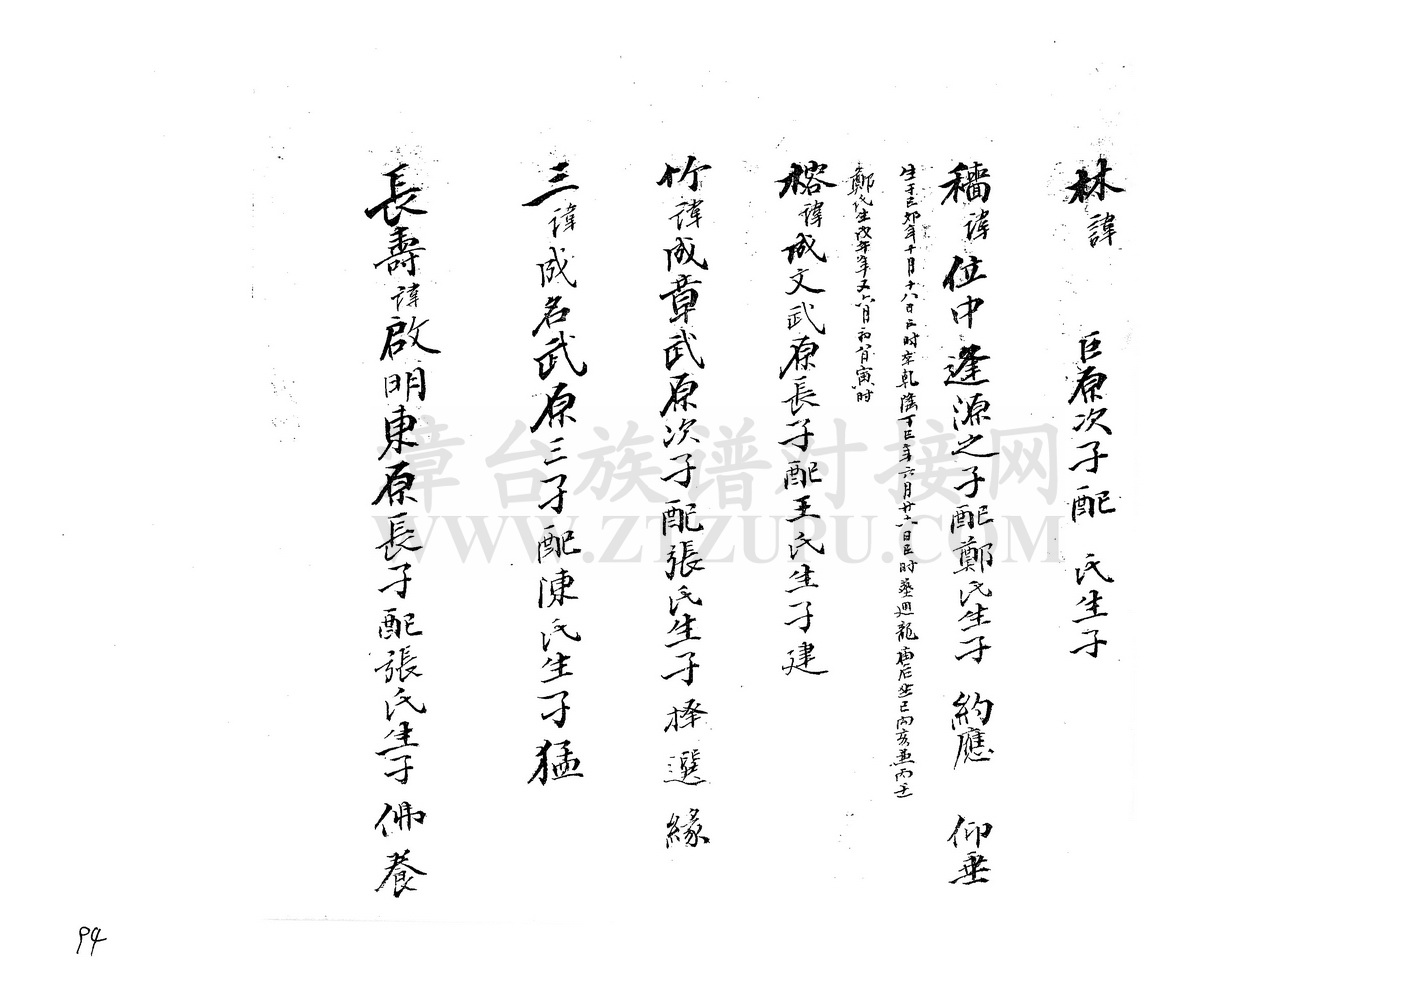 林諱 巨原次子配 氏生子
穡諱位中逢源之子配鄭氏生子 約應 仰垂
生于己卯年十月十八日 时卒乾隆丁巳年六月廿六日巳时葬迴龍 后坐巳向亥兼丙壬
鄭氏生戊午年五六月初 日寅时
榕諱成文武原長子配王氏生子建
竹諱成章武原次子配張氏生子 擇 選 緣
三諱成名武原三子配陳氏生子猛
長壽諱啟明東原長子配張氏生子 佛 養
章台族谱对接网
WWW.ZTZUPU.COM
94